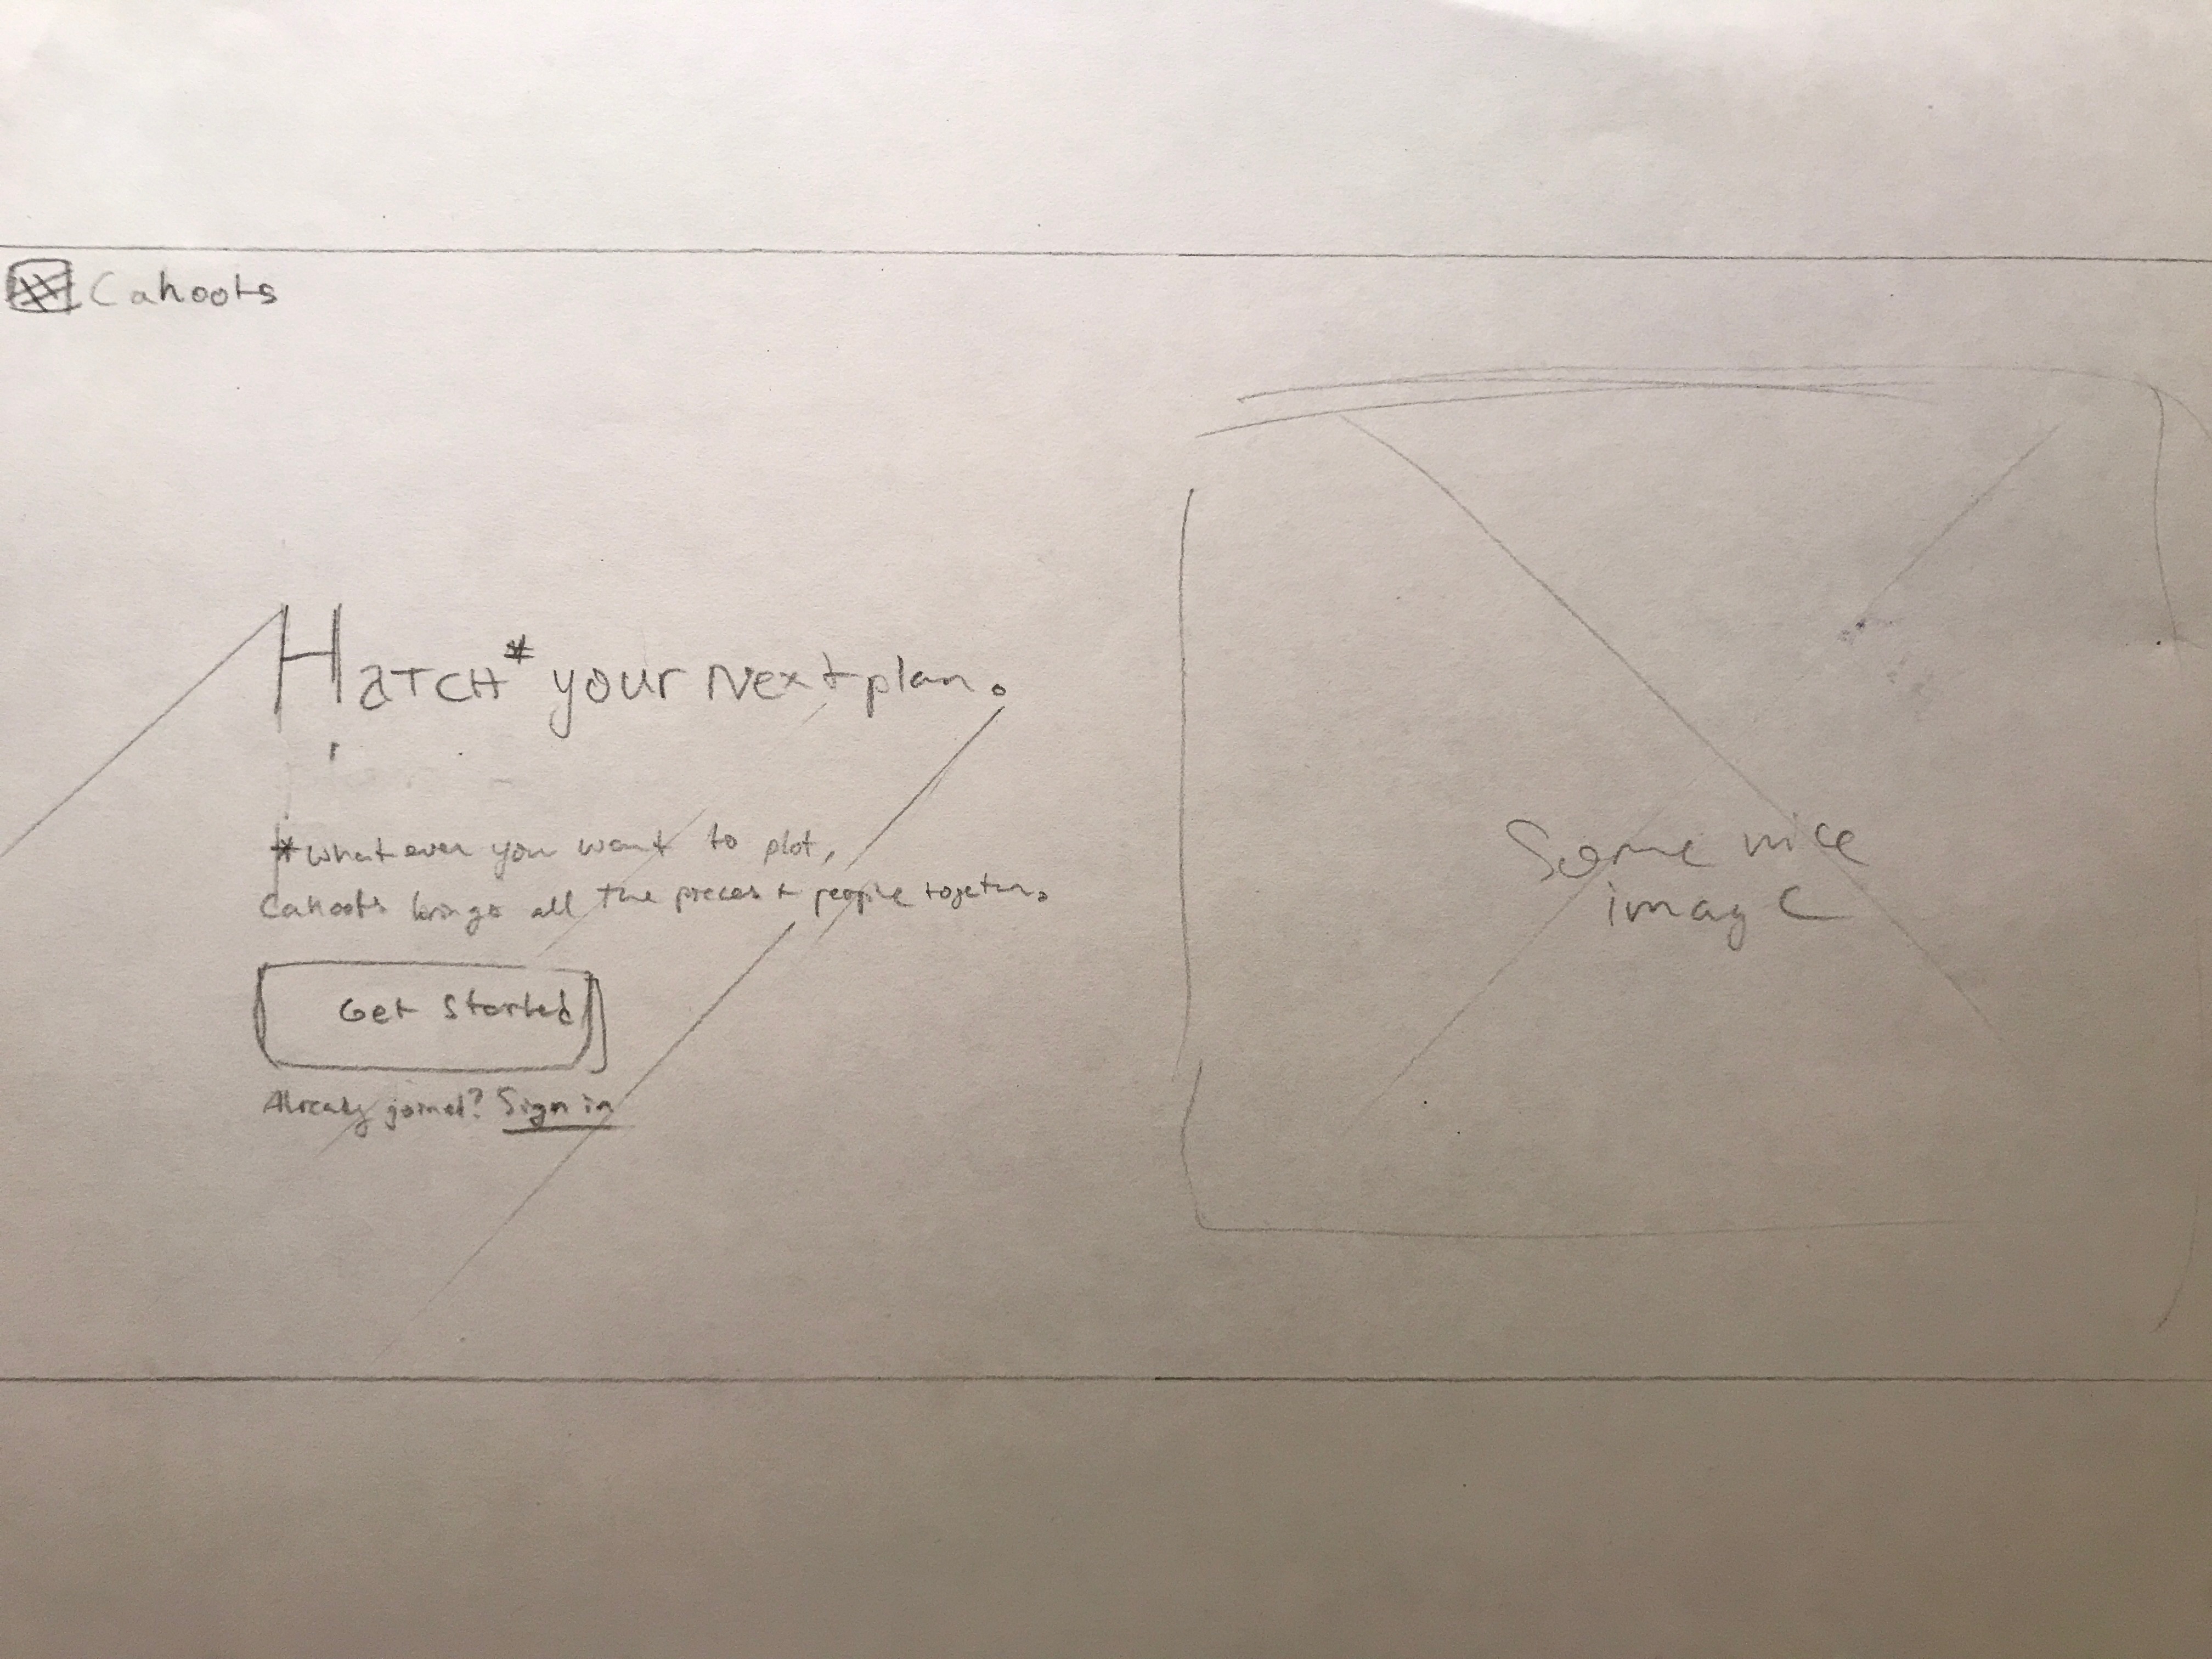 Cahoots
HATCH* your Next plan.
*Whatever you want to plot,
Cahoots brings all the pieces + people together.
Get Started
Already joined? Sign in
Some nice
image